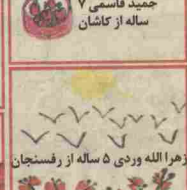 حمید قاسمی ۷
ساله از کاشان
زهرا الله وردی ۵ ساله از رفسنجان